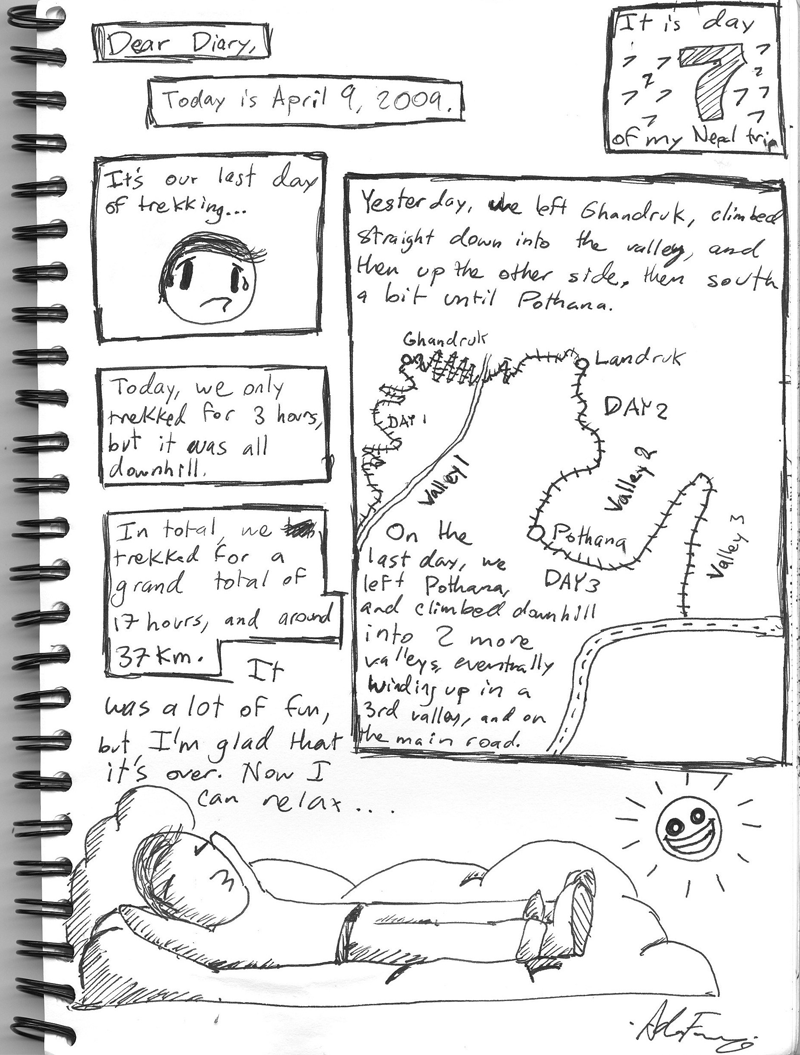 Dear Diary,
Today is April 9, 2009.
It is day
7
of my Nepal trip
It's our last day
of trekking...
Today, we only
trekked for 3 hours,
but it was all
downhill.
In total, we
trekked for a
grand total of
17 hours, and around
37 Km.
It
was a lot of fun,
but I'm glad that
it's over. Now I
can relax....
Yesterday, we left Ghandruk, climbed
straight down into the valley, and
then up the other side, then south
a bit until Pothana.
Ghandruk
Landruk
DAY 1
DAY 2
Valley 1
Valley 2
Pothana
DAY 3
Valley 3
On the
last day, we
left Pothana,
and climbed downhill
into 2 more
valleys, eventually
winding up in a
3rd valley, and on
the main road.